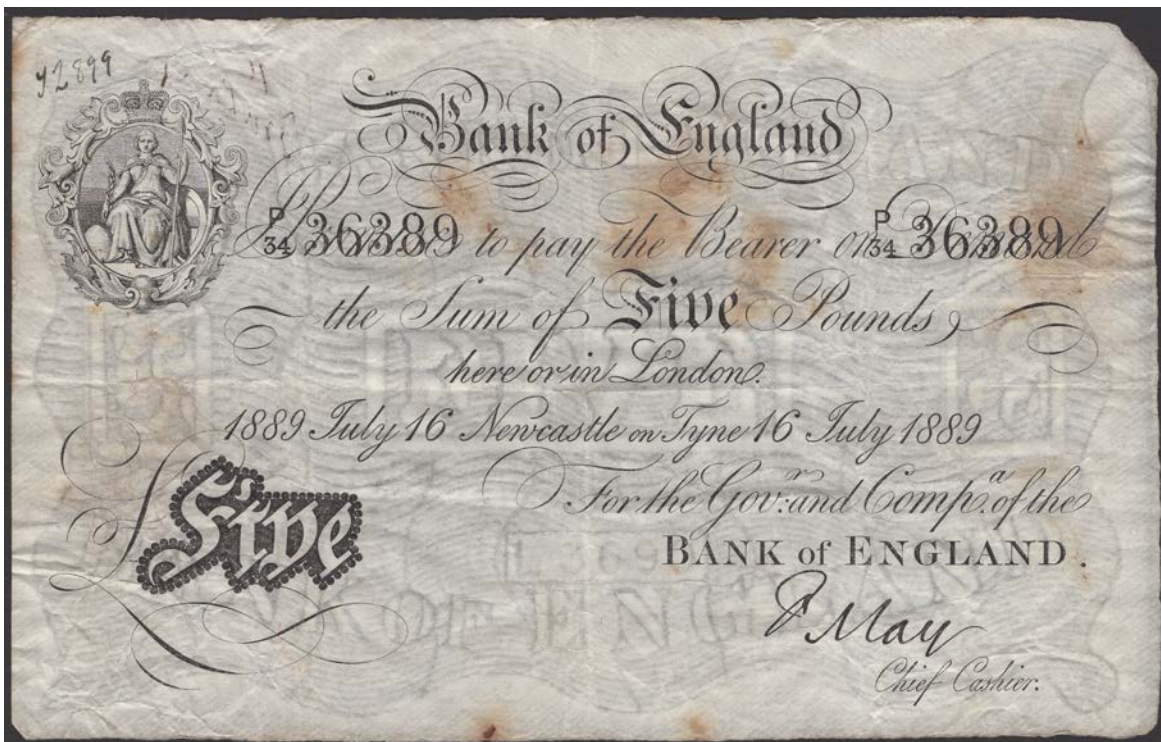 92899
Bank of England
P/34 36389 P/34 36389
I Promise to pay the Bearer on Demand
the Sum of Five Pounds,
here or in London.
1889 July 16 Newcastle on Tyne 16 July 1889
For the Gov:r and Comp:a of the
Five
BANK of ENGLAND.
F May
Chief Cashier.